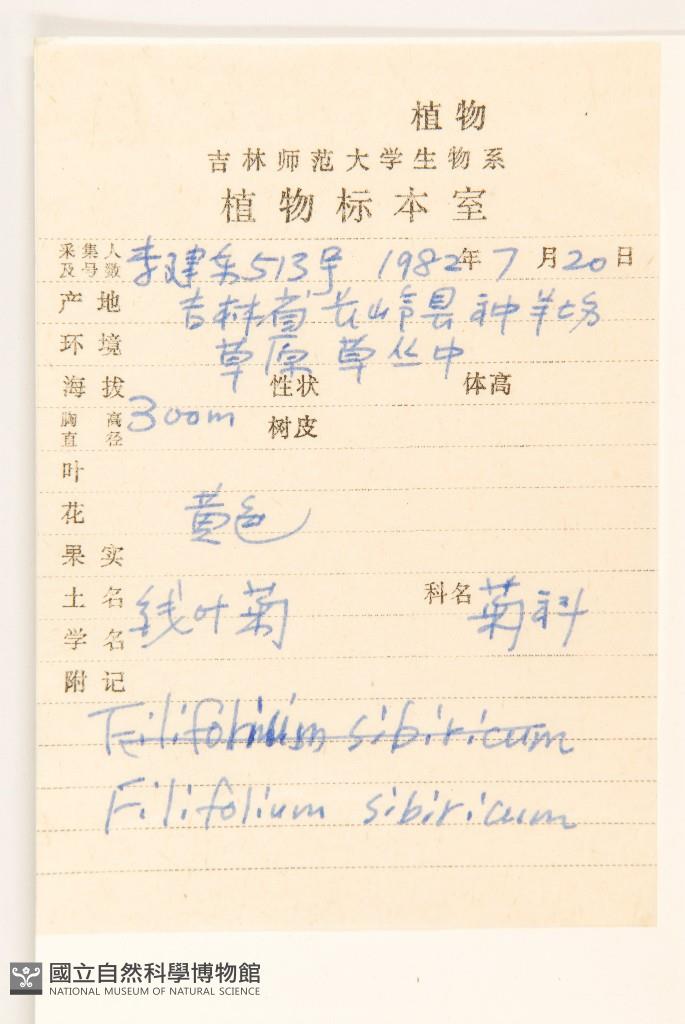 植物
吉林师范大学生物系
植物标本室
采集人及号数 李建东513号 1982年7月20日
产地 吉林省长岭县种羊场
环境 草原 草丛中
海拔 300m 性状 体高
胸高直径 树皮
叶
花 黄色
果实
土名 线叶菊 科名 菊科
学名
附记
Filifolium sibiricum
Filifolium sibiricum
國立自然科學博物館
NATIONAL MUSEUM OF NATURAL SCIENCE